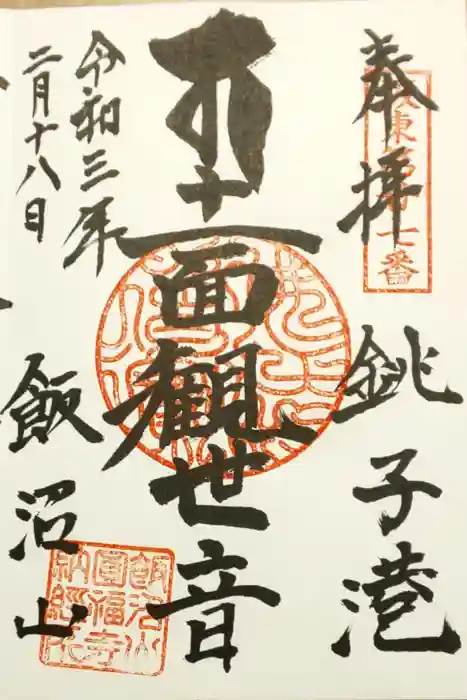 奉拝
坂東第廿七番
銚子港
十一面観世音
令和三年
二月十八日
飯沼山
飯沼山
圓福寺
納経所